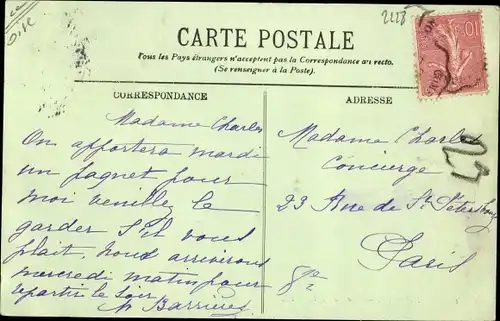 Oise
2228
CARTE POSTALE
Tous les Pays étrangers n'acceptent pas la Correspondance au recto.
(Se renseigner à la Poste).
CORRESPONDANCE
Madame Charles
On apportera mardi
un paquet pour
moi veuillez le
garder S'il vous
plait. Nous arriverons
mercredi matin pour
repartir le soir
Barrière
ADRESSE
Madame Charles
Concierge
23 Rue de St Petersbourg
Paris
8e
10